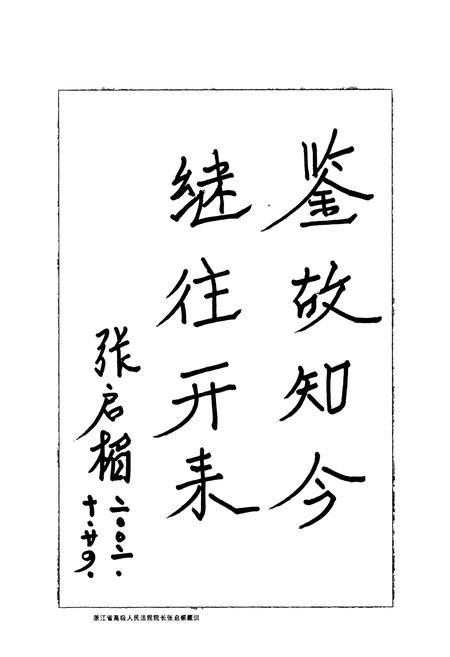 鉴故知今
继往开来
张启楣
二〇〇二.
十.廿四.
浙江省高级人民法院院长张启楣题词